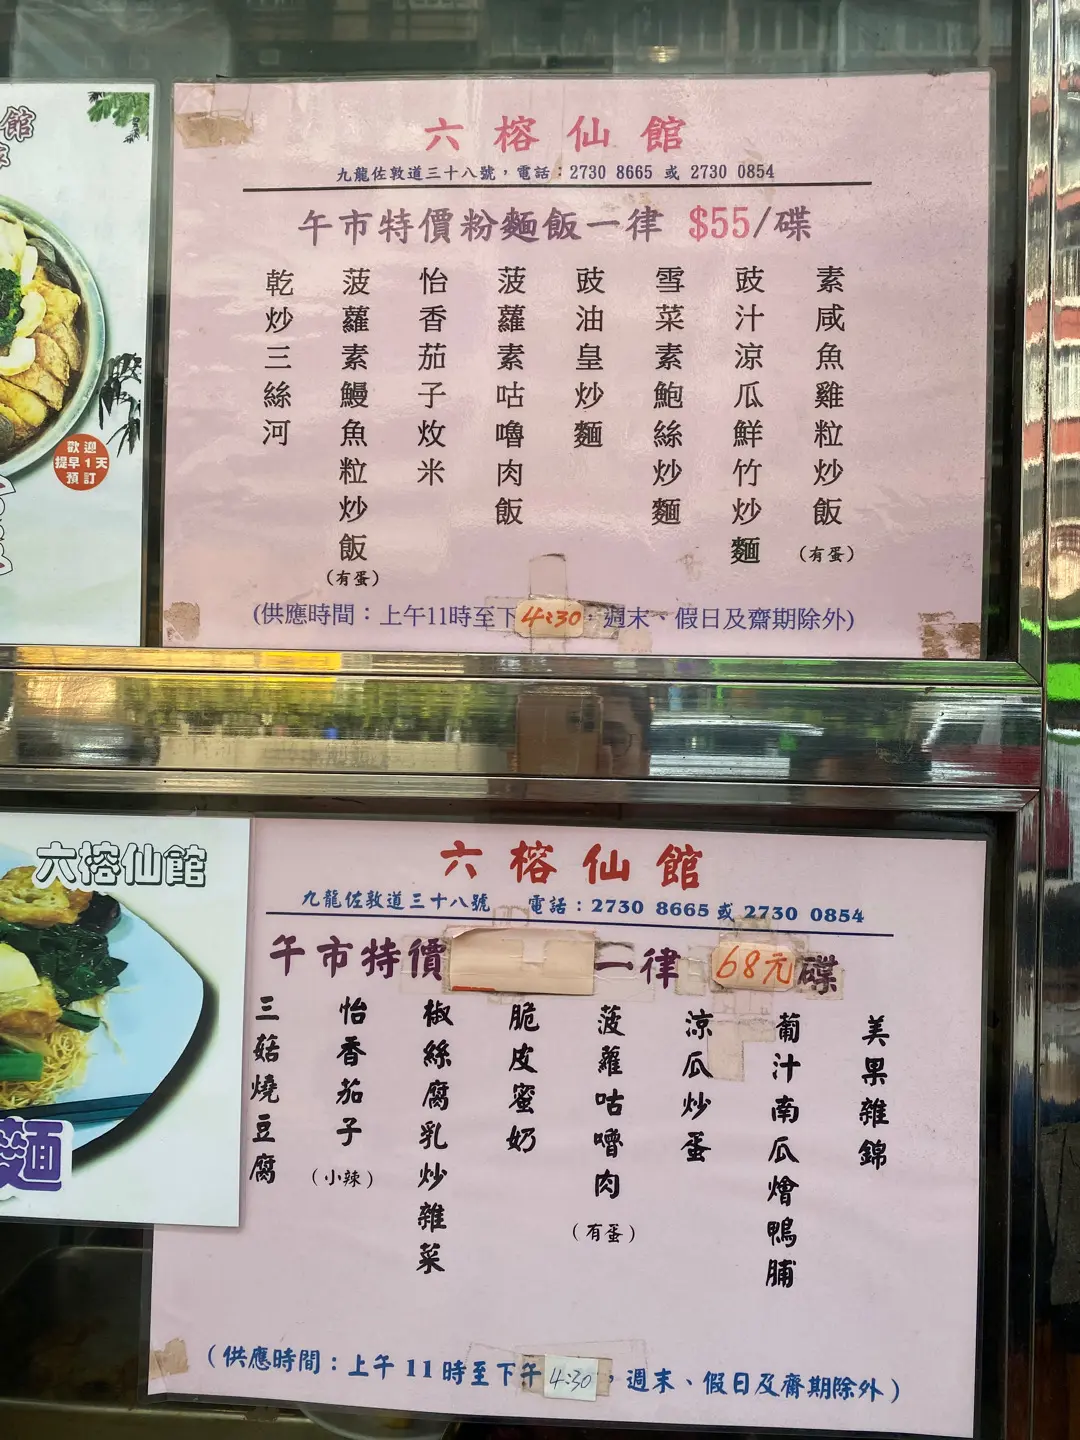 六榕仙館
九龍佐敦道三十八號，電話：2730 8665 或 2730 0854
午市特價粉麵飯一律 $55/碟
素咸魚雞粒炒飯
(有蛋)
豉汁涼瓜鮮竹炒麵
雪菜素鮑絲炒麵
豉油皇炒麵
菠蘿素咕嚕肉飯
怡香茄子炆米
菠蘿素鰻魚粒炒飯
(有蛋)
乾炒三絲河
(供應時間：上午11時至下 4:30，週末、假日及齋期除外)
館
歡迎
提早1天
預訂
六榕仙館
九龍佐敦道三十八號 電話：2730 8665 或 2730 0854
午市特價 一律 68元 碟
美果雜錦
葡汁南瓜燴鴨脯
涼瓜炒蛋
菠蘿咕嚕肉
(有蛋)
脆皮蜜奶
椒絲腐乳炒雜菜
怡香茄子
(小辣)
三菇燒豆腐
(供應時間：上午 11 時至下午 4:30，週末、假日及齋期除外)
六榕仙館
麵